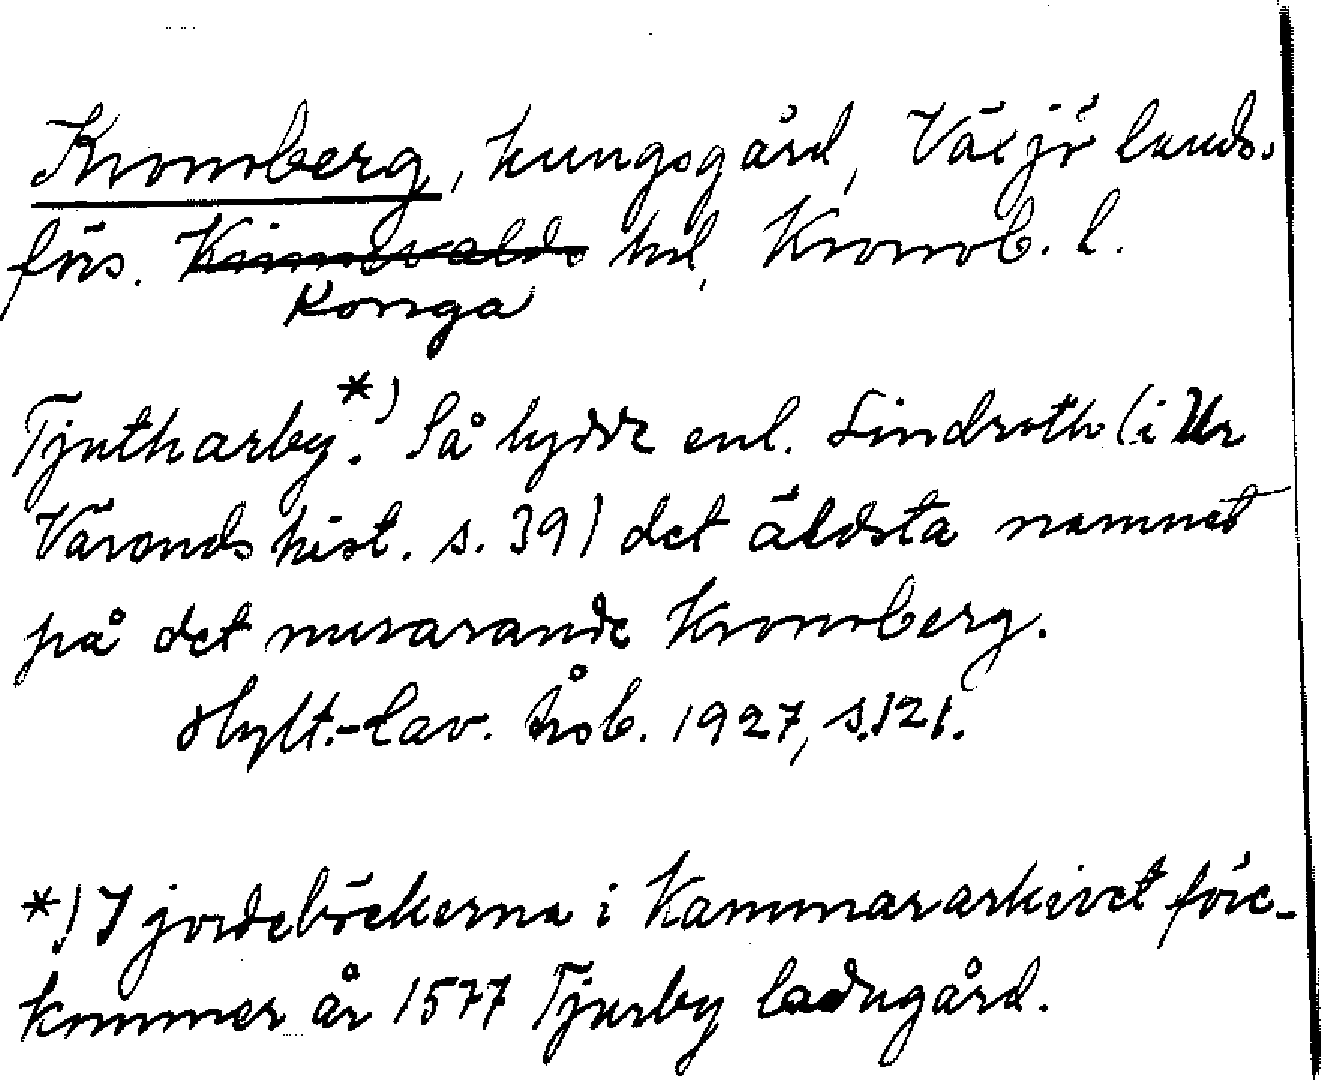 Kronoberg, kungsgård, Växjö lands-
förs. Kinnevalds hd, Kronob. l.
Konga
Tjutharby.*) Så lydde enl. Lindroth (i Ur
Värends hist. s. 39) det äldsta namnet
på det nuvarande Kronoberg.
Hylt.-Cav. Årsb. 1927, s. 121.
*) I jordeböckerna i Kammararkivet före-
kommer år 1577 Tjurby ladugård.